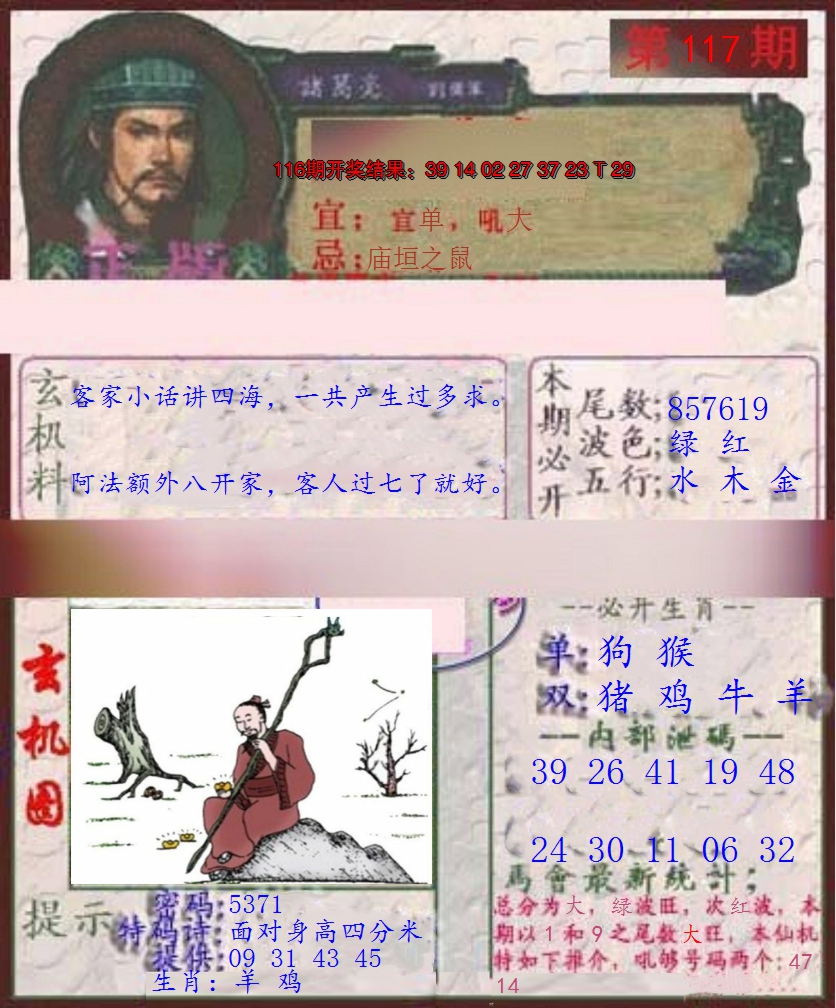 第 117 期
諸葛亮
116期开奖结果：39 14 02 27 37 23 T 29
宜；宜单，吼大
忌；庙垣之鼠
正版
玄机料
客家小话讲四海，一共产生过多求。
阿法额外八开家，客人过七了就好。
本期必开
尾数；857619
波色；绿 红
五行；水 木 金
--必开生肖--
单：狗 猴
双：猪 鸡 牛 羊
--内部泄碼--
39 26 41 19 48
24 30 11 06 32
玄机图
馬會最新統計；
总分为大，绿波旺，次红波，本
期以1和9之尾数大旺，本仙机
特如下推介，吼够号码两个：47
14
提示
密码：5371
特码诗：面对身高四分米
提供：09 31 43 45
生肖：羊 鸡